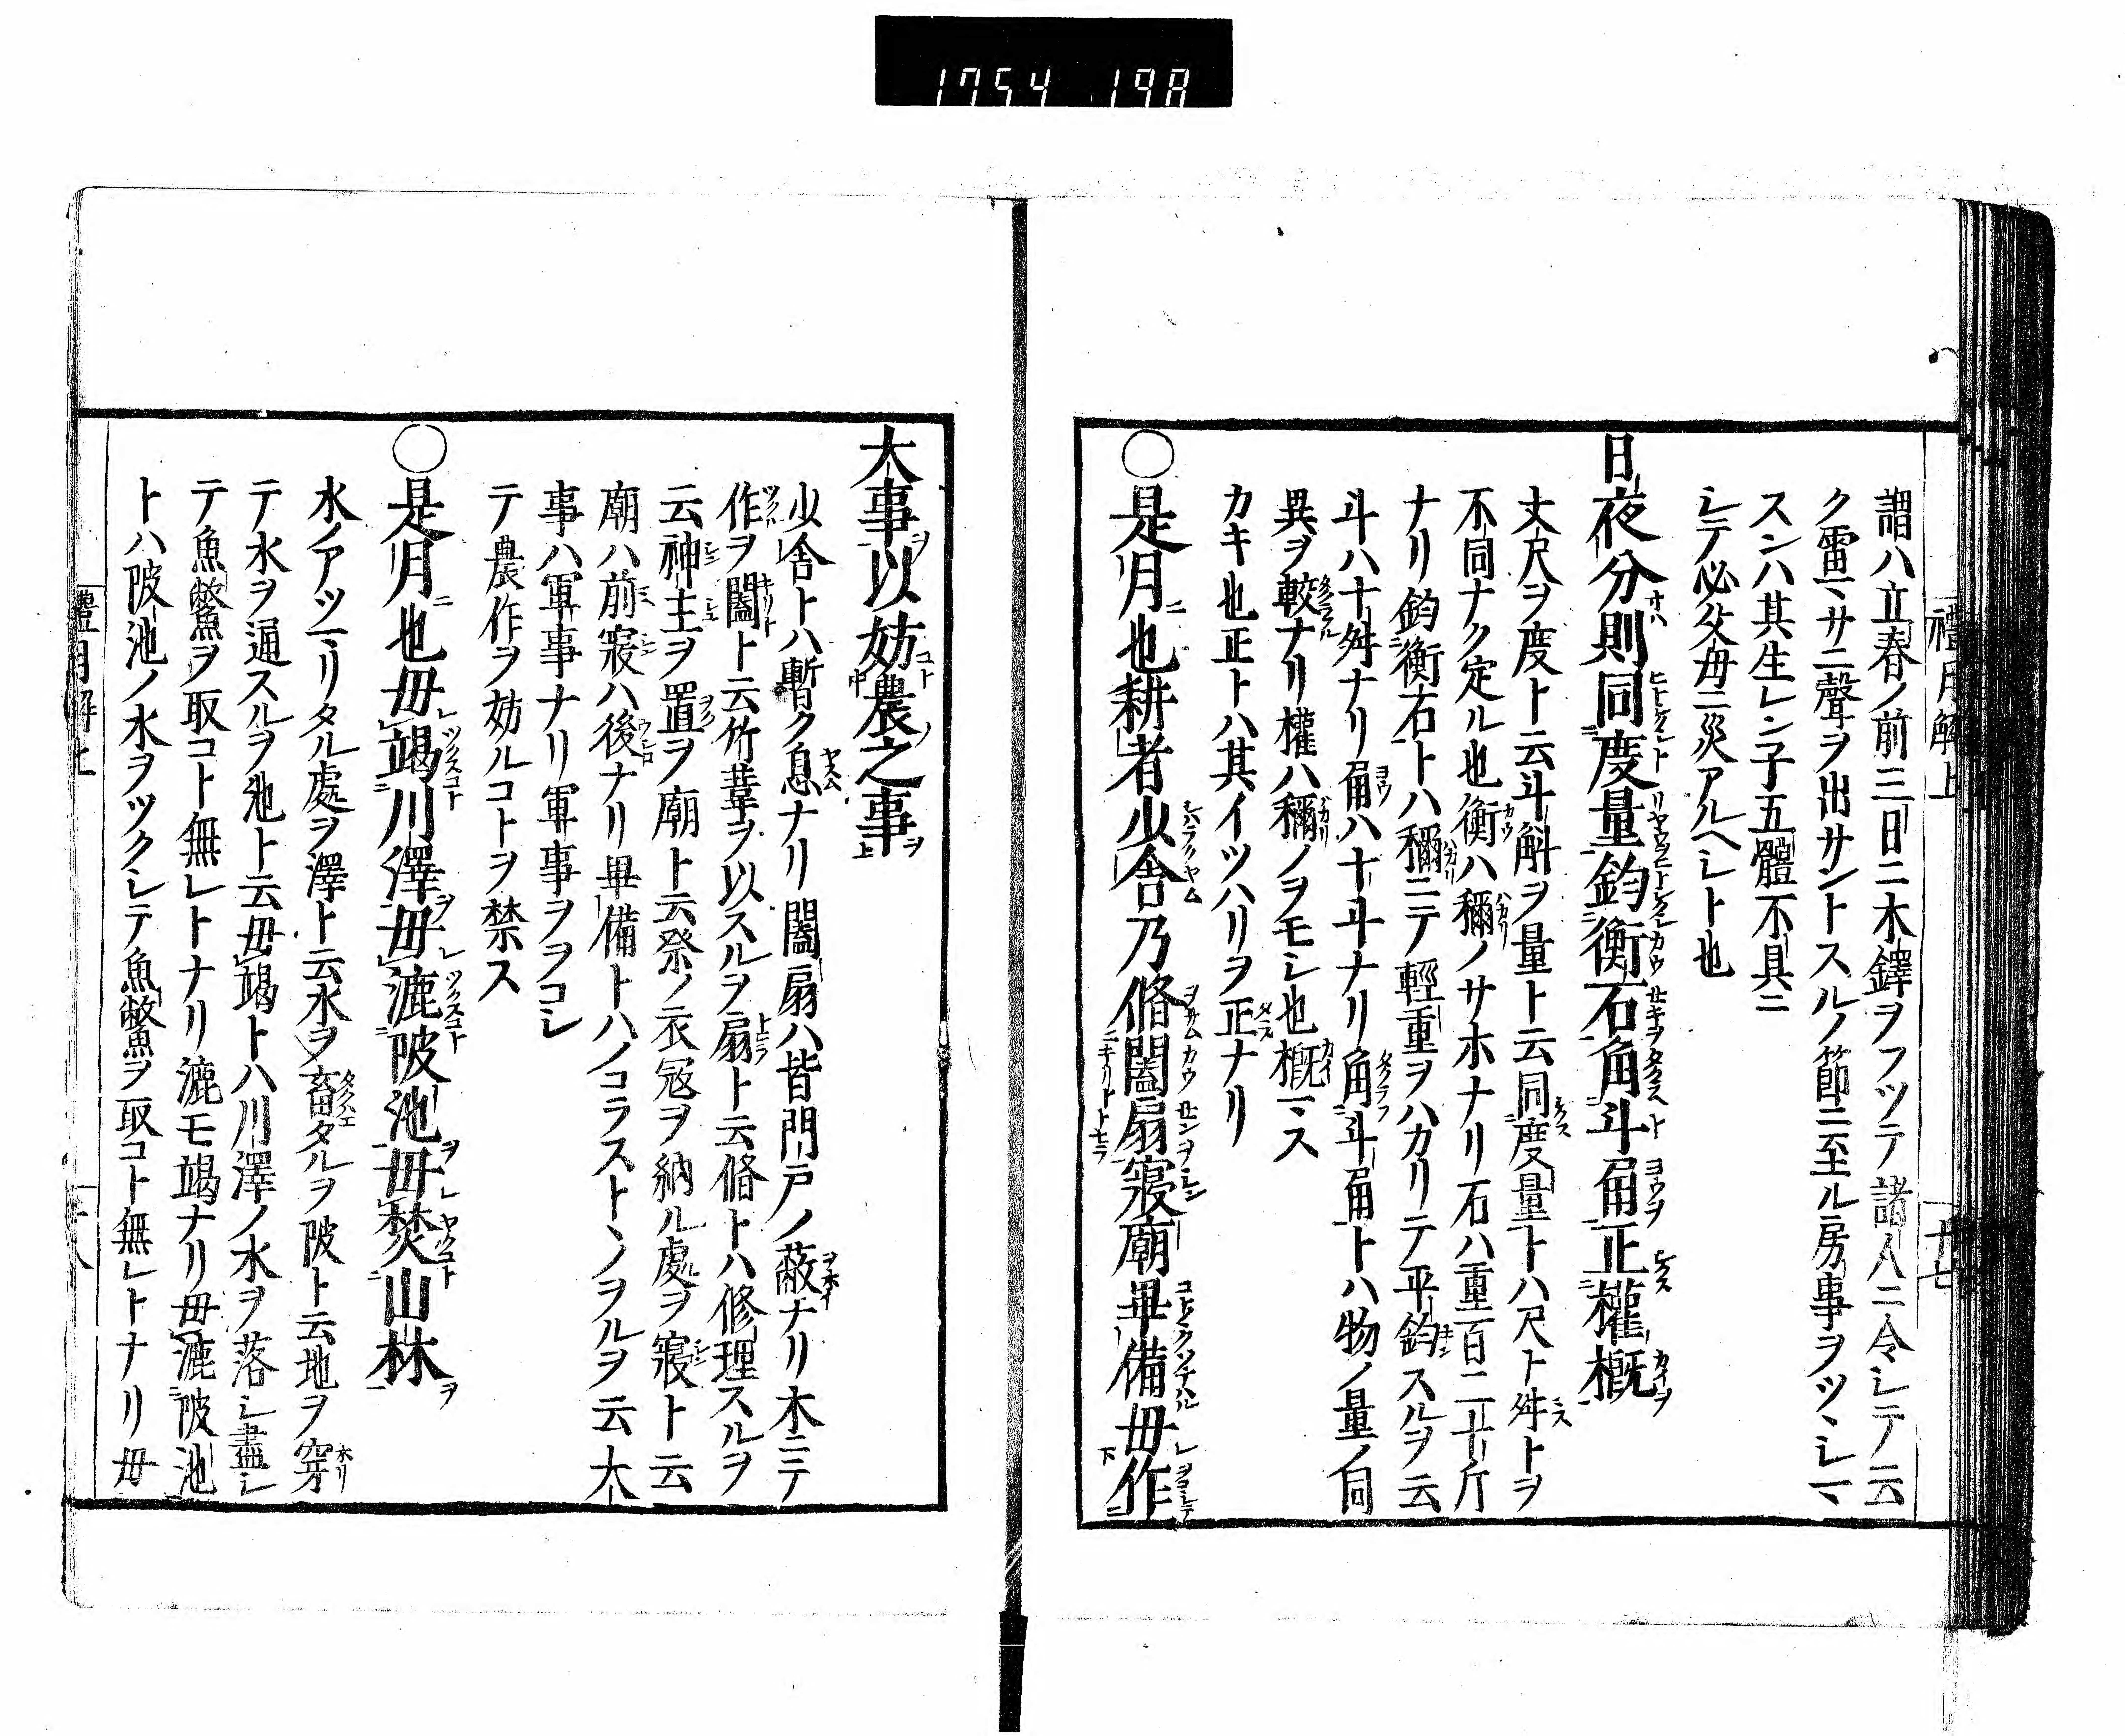 1754 198
禮月解上
十七
謂ハ立春ノ前三日ニ木鐸ヲフツテ諸人ニ令シテ云
ク雷マサニ聲ヲ出サントスルノ節ニ至ル房事ヲツヽシマ
スンハ其生レン子五體不具ニ
シテ必父毋ニ災アルヘシト也
日夜分則同度量鈞衡石角斗甬正權概
丈尺ヲ度ト云斗斛ヲ量ト云同度量トハ尺ト舛トヲ
不同ナク定ル也衡ハ稱ノサホナリ石ハ重百二十斤
ナリ鈞衡石トハ稱ニテ輕重ヲハカリテ平鈞スルヲ云
斗ハ十舛ナリ甬ハ十斗ナリ角斗甬トハ物ノ量ノ同
異ヲ較ナリ權ハ稱ノヲモシ也概マス
カキ也正トハ其イツハリヲ正ナリ
○是月也耕者少舍乃脩闔扇寢廟畢備毋作
大事以妨農之事
少舍トハ暫ク息ナリ闔扇ハ皆門戸ノ蔽ナリ木ニテ
作ヲ闔ト云竹葦ヲ以スルヲ扇ト云脩トハ修理スルヲ
云神主ヲ置ヲ廟ト云祭ノ衣冠ヲ納ル處ヲ寢ト云
廟ハ前寢ハ後ナリ畢備トハノコラストヽノヲルヲ云大
事ハ軍事ナリ軍事ヲヲコシ
テ農作ヲ妨ルコトヲ禁ス
○是月也毋竭川澤毋漉陂池毋焚山林
水ノアツマリタル處ヲ澤ト云水ヲ畜タルヲ陂ト云地ヲ穿
テ水ヲ通スルヲ池ト云毋竭トハ川澤ノ水ヲ落シ盡シ
テ魚鱉ヲ取コト無レトナリ漉モ竭ナリ毋漉陂池
トハ陂池ノ水ヲツクシテ魚鱉ヲ取コト無レトナリ毋
禮月解上